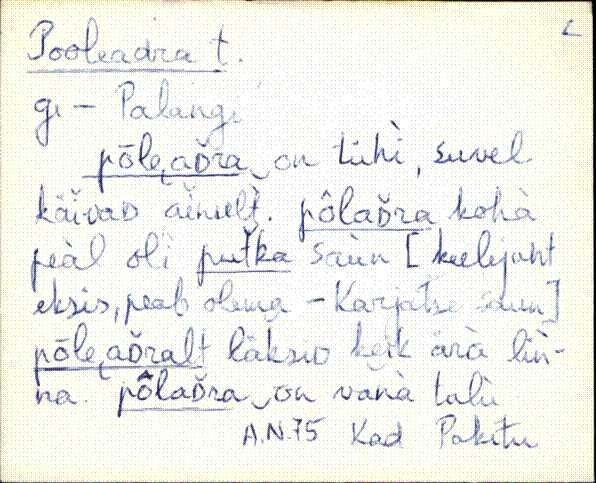 Pooleadra t. L
gı – Palangi
põle͜aᴅ̆ra‿on tühì, suvel
käĭvaᴅ aĭnult̀. pôlaᴅ̆ra kohà
peàl olì put̆ka saùn [keelejuht
eksis, peab olema – Karjatse saun]
põle͜aᴅ̆ralt läksiᴅ keĭk ärà lìn-
na. pôlaᴅ̆ra‿on vanà talù
A.N. 75 Kad Pakitu